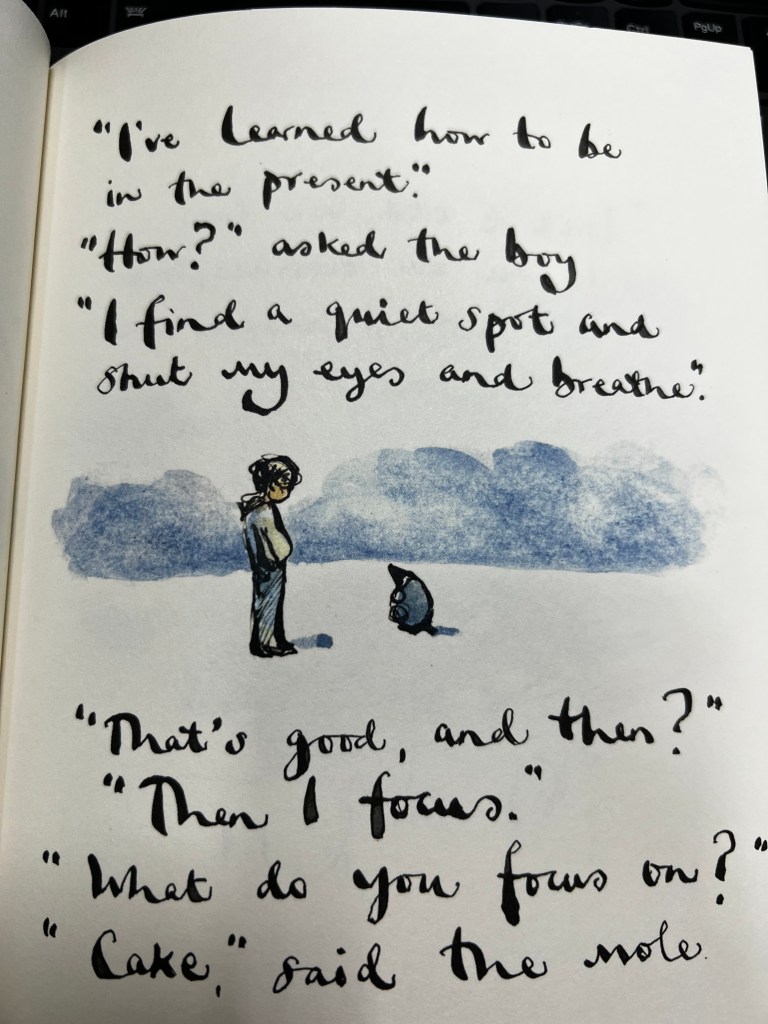 Alt
Ctrl
PgUp
"I've learned how to be
in the present."
"How?" asked the boy
"I find a quiet spot and
shut my eyes and breathe".
"That's good, and then?"
"Then I focus."
"What do you focus on?"
"Cake," said the mole.